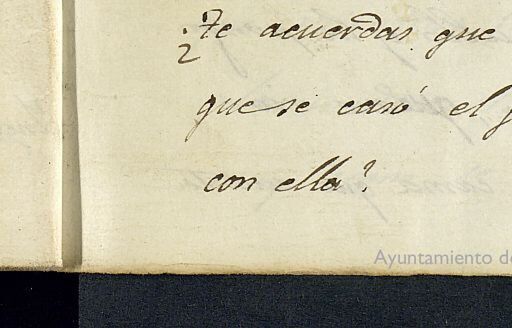 ¿Te acuerdas que
que se casó el
con ella?
Ayuntamiento de